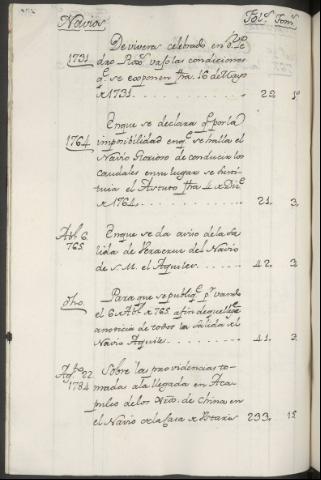 Navios Fol.s Tom.s
De viveres celebrado en D.n Pe
dro Ros vaxo las condiciones
1731 q.e se exponen fha. 16 de Mayo
de 1731. 22. 1.o
En que se declara q.e por la
1764 imposibilidad enq.e se halla el
Navio Glorioso de conducir los
caudales en su lugar se susti-
tuia el Astuto fha 4 de Dic.e
de 1764. 21. 3.
Ab.l 6. En que se da aviso de la Sa
765 lida de Veracruz del Navio
de S. M. el Aquiles. 42. 3.
dho. Para que se publiq.e p.r vando
el 6 de Ab.l de 765 afin de que llegue
a noticia de todos la salida del
Navio Aquiles. 41. 3.
Ag.to 22. Sobre las providencias to-
1784 madas a la llegada en Aca-
pulco de los de China en
el Navio de la Casa de 233. 13